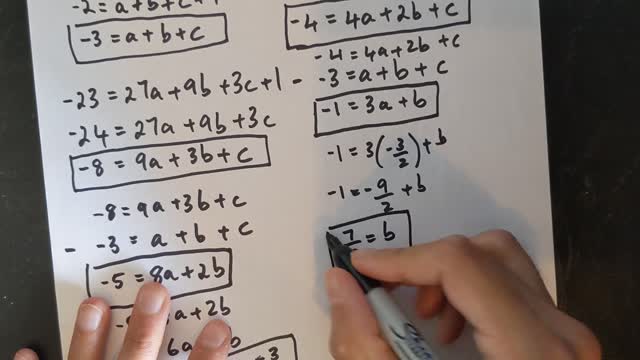 -2 = a+b+c+1
-3 = a+b+c
-23 = 27a+9b+3c+1
-24 = 27a+9b+3c
-8 = 9a+3b+c
-8 = 9a+3b+c
- -3 = a+b+c
-5 = 8a+2b
a+2b
6a
= 3
-4 = 4a+2b+c
-4 = 4a+2b+c
- -3 = a+b+c
-1 = 3a+b
-1 = 3(-3/2)+b
-1 = -9/2+b
7/ = b
Sharpie